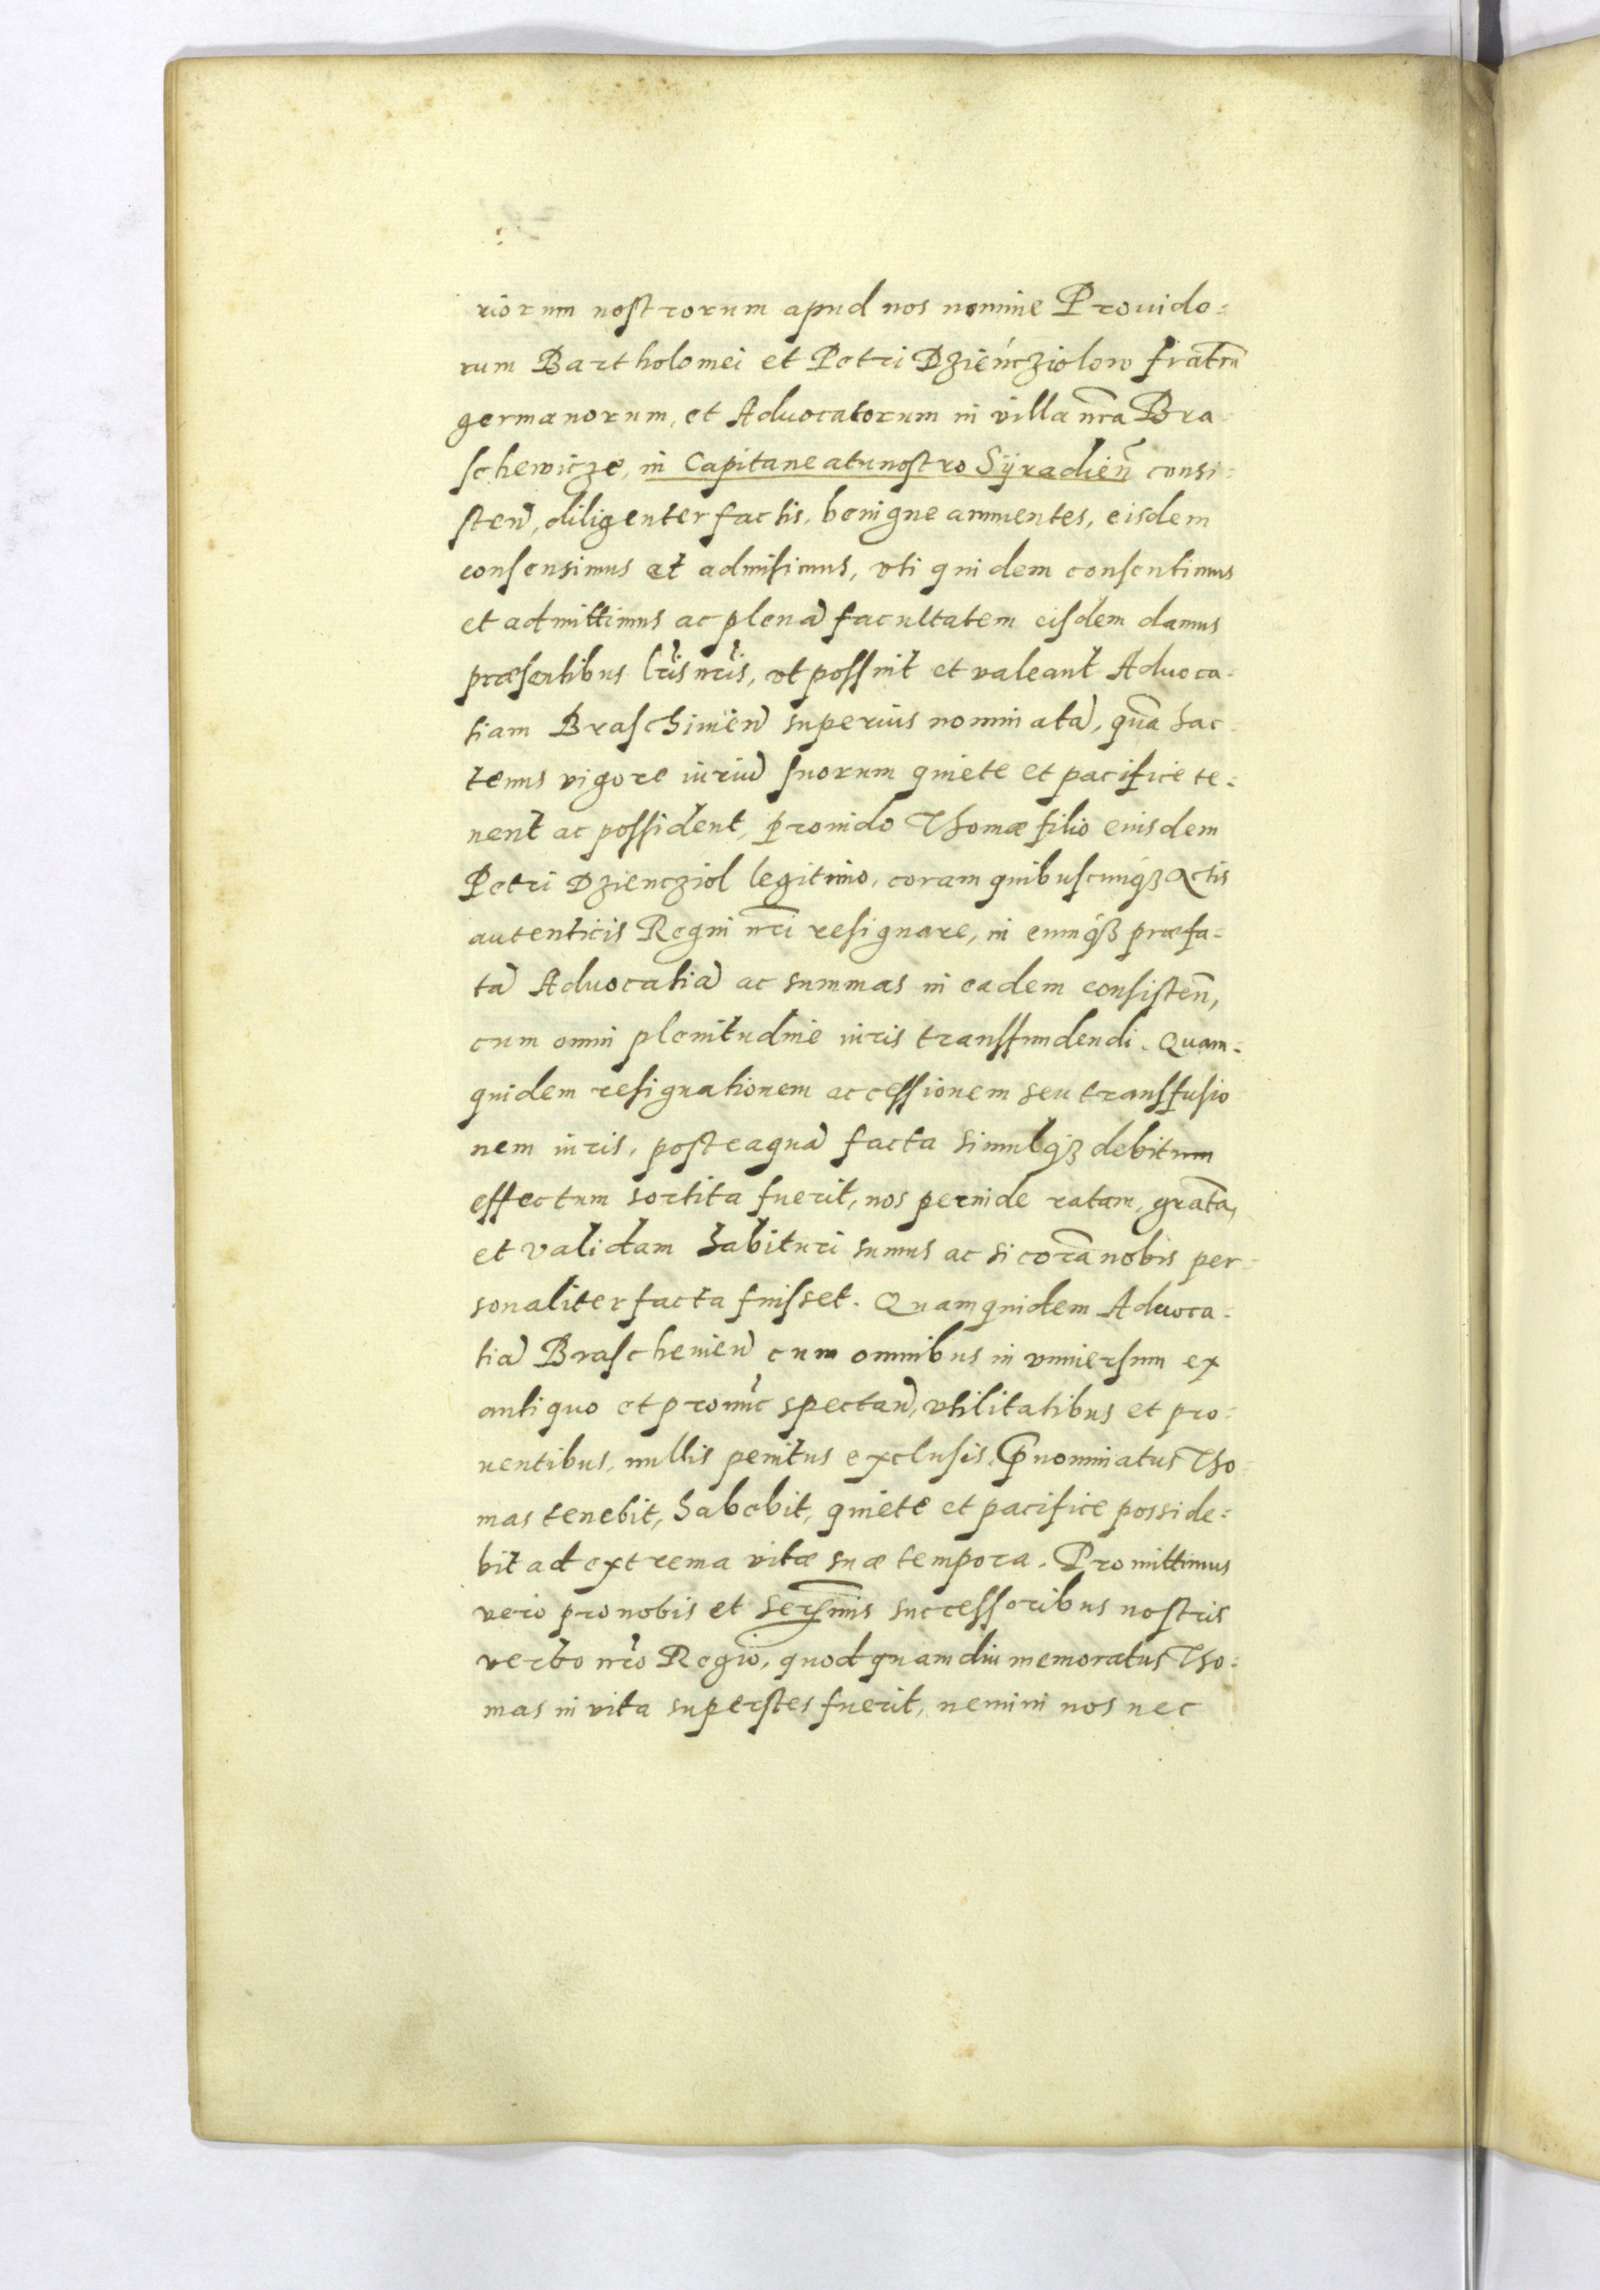 riorum nostrorum apud nos nomine Prouido=
rum Bartholomei et Petri Dzieńcziolow fratrũ
germanorum, et Aduocatorum in villa nr̃a Bra=
schewicze, in Capitaneatu nostro Sÿradień consi=
sten̄, diligenter factis, benigne annuentes, eisdem
consensimus et admisimus, vti quidem consentimus
et admittimus ac plenā facultatem eisdem damus
præsentibus lr̃is nr̃is, vt possint et valeant Aduoca=
tiam Braschiuien̄ superius nominatā, quã hac=
tenus vigore iuriū suorum quiete et pacifice te=
nent ac possident, prouido Thomæ filio eiusdem
Petri Dziencziol legitimo, coram quibuscunqȝ Actis
autenticis Regni nr̃i resignare, in eumqȝ præfa=
tā Aduocatiā ac summas in eadem consisteñ,
cum omni plenitudine iuris transfundendi. Quam=
quidem resignationem ac cessionem seu transfusio
nem iuris, posteaquā facta simulqȝ debitum
effectum sortita fuerit, nos perinde ratam, gratã,
et validam habituri sumus ac si corã nobis per=
sonaliter facta fuisset. Quamquidem Aduoca=
tiā Braschewien̄ cum omnibus in vniuersum ex
antiquo et pronũc spectan̄, vtilitatibus et pro=
uentibus, nullis penitus exclusis, p̄nominatus Tho=
mas tenebit, habebit, quiete et pacifice posside=
bit ad extrema vitæ suæ tempora. Promittimus
vero pro nobis et Serẽmis successoribus nostris
verbo nr̃o Regio, quod quamdiu memoratus Tho=
mas in vita superstes fuerit, nemini nos nec